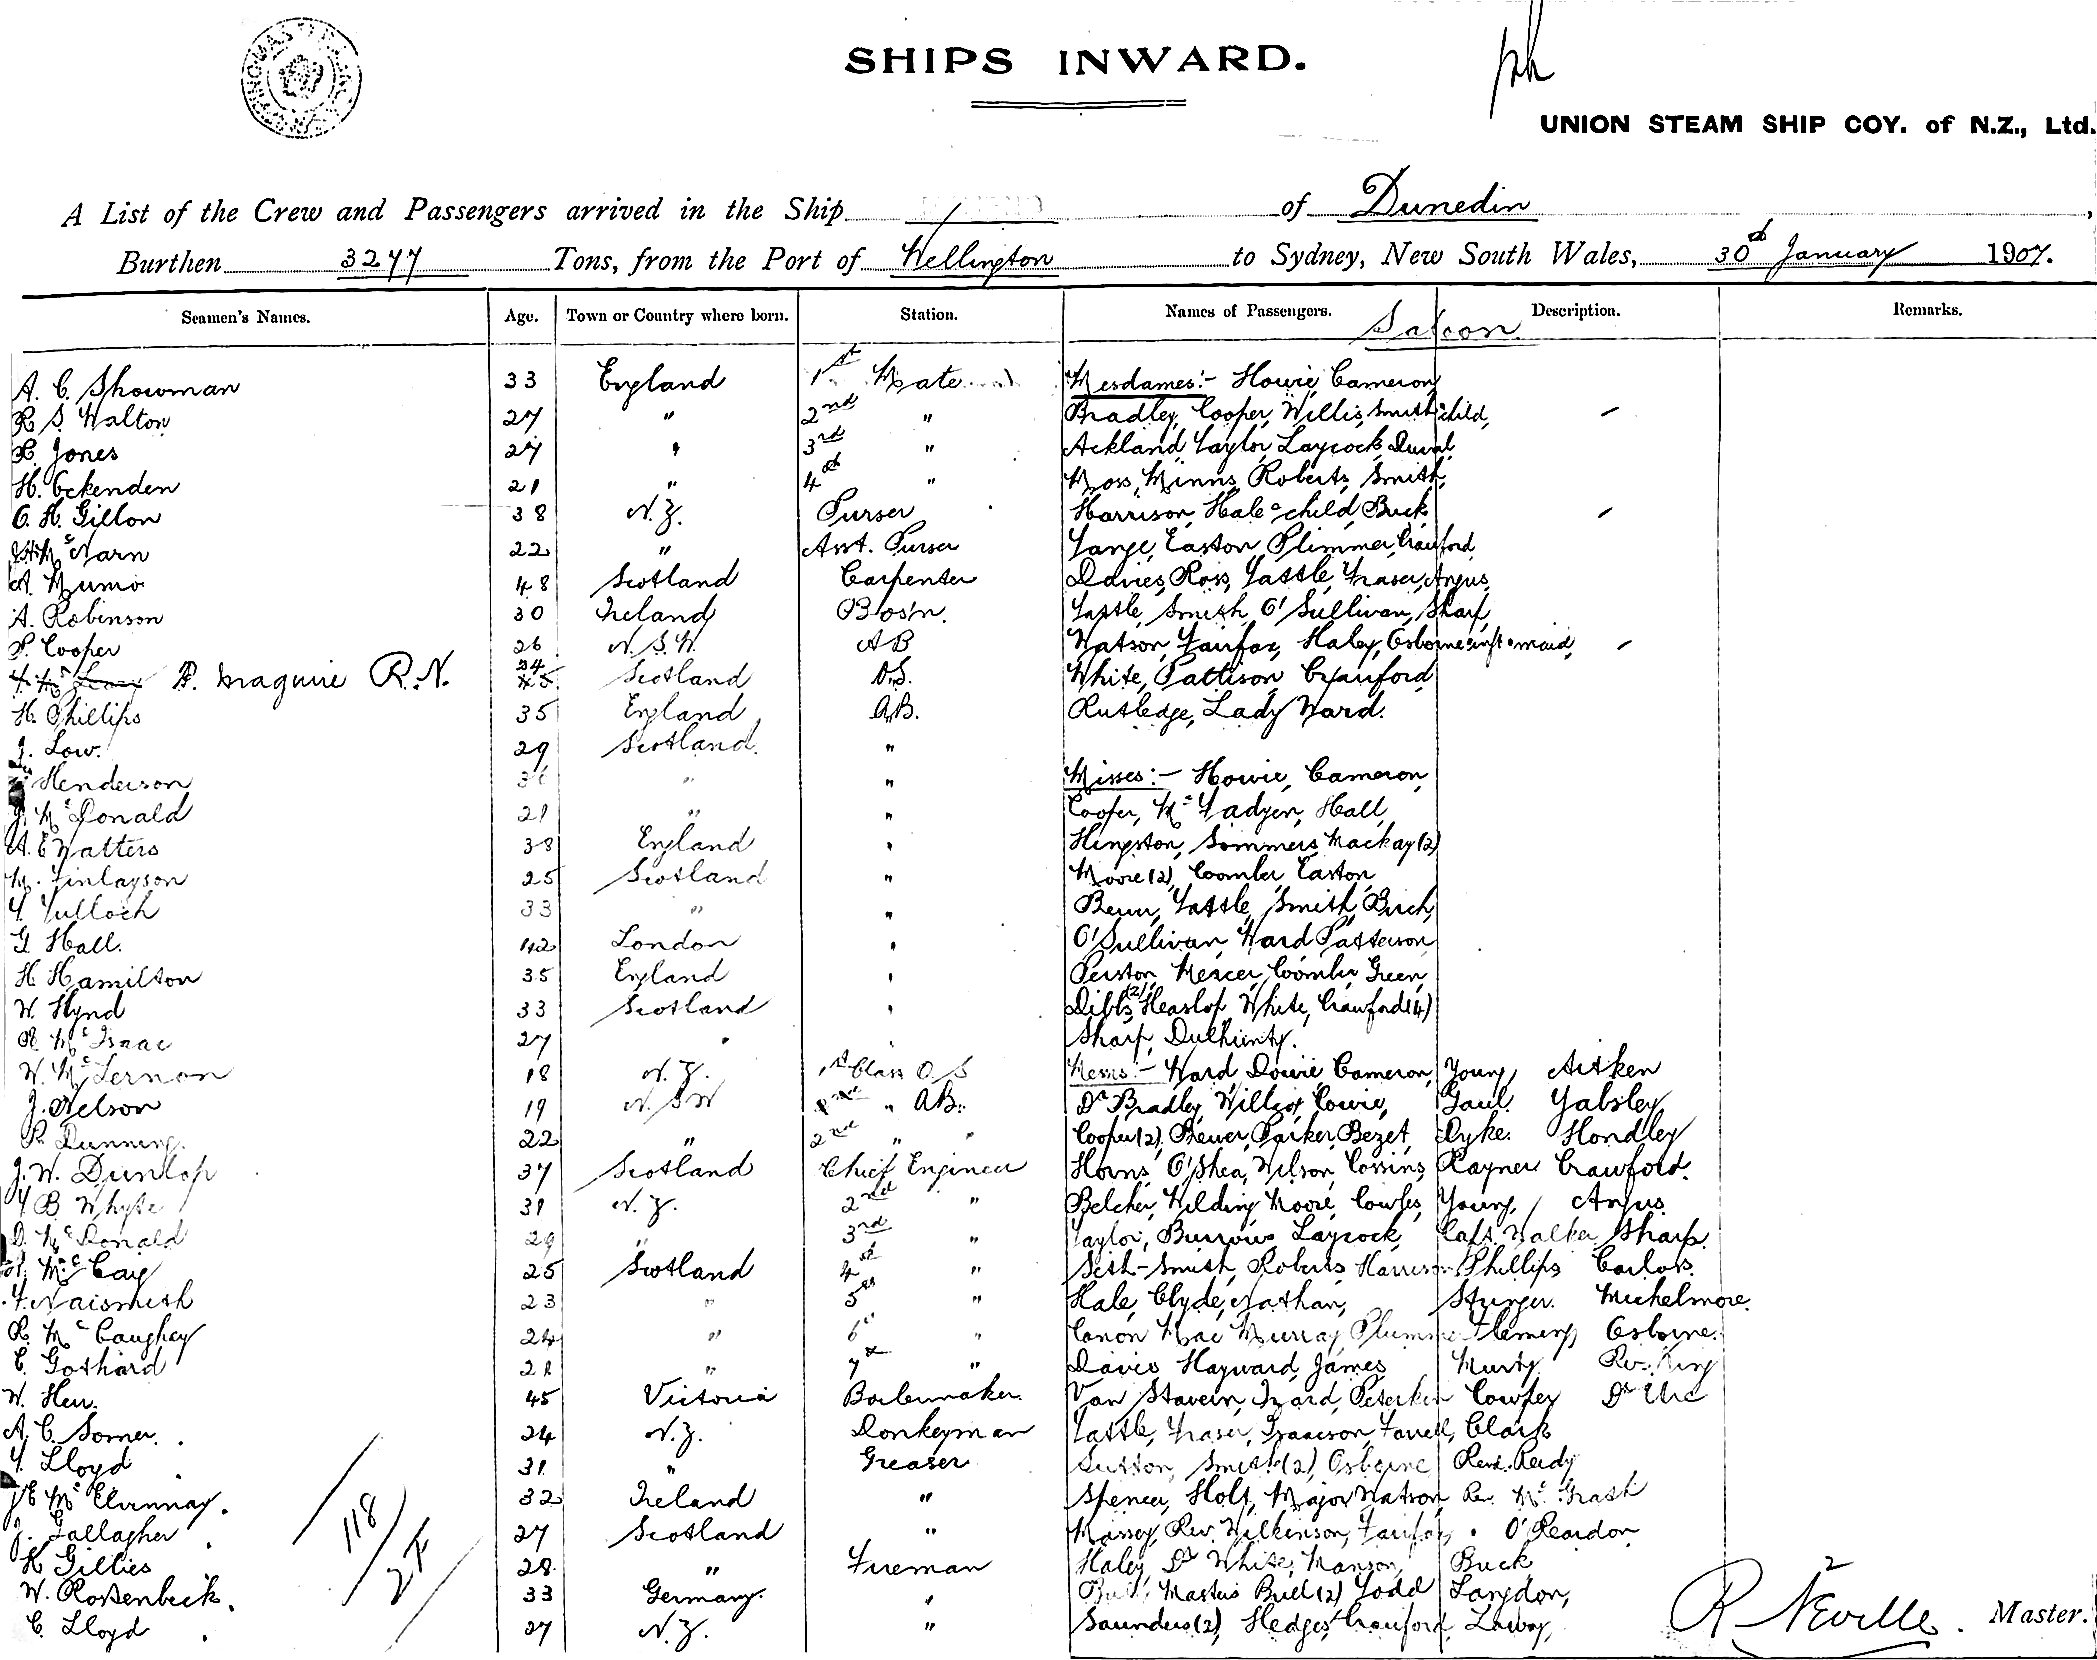 SHIPS INWARD.
UNION STEAM SHIP COY. of N.Z., Ltd.
A List of the Crew and Passengers arrived in the Ship of Dunedin,
Burthen 3277 Tons, from the Port of Wellington to Sydney, New South Wales, 30th January 1907.
Seamen's Names. Age. Town or Country where born. Station. Names of Passengers. Description. Remarks.
Saloon
A. C. Showman 33 England 1st Mate Mesdames:- Howie, Cameron
R S. Walton 27 " 2nd " Bradley, Cooper, Willis, Smith & child,
Jones 27 " 3rd " Ackland, Taylor, Laycock, Duval,
H. Ockenden 21 " 4th " Moss, Minns, Roberts, Smith,
C. H. Gillon 38 N.Z. Purser Harrison, Hale & child, Buck
22 " Asst. Purser Easton, Plimmer, Crawford,
A. Munro 48 Scotland Carpenter Davies, Ross, Tattle, Fraser, Angus,
A. Robinson 30 Ireland Bos'n. Tattle, Smith, O'Sullivan, Sharp,
Cooper 26 N.S.W. AB Watson, Fairfax, Haley, Osborne inft & maid,
Maguire R.N. 24 Scotland O.S. White, Pattison, Crawford
H. Phillips 35 England A.B. Rutledge, Lady Ward.
J. Low. 29 Scotland. "
Henderson " " Misses:- Howie, Cameron,
J. McDonald 21 " " Cooper, Hall,
A. E Watters 38 England " Hingston, Sommers, Mackay (2)
M. Finlayson 25 Scotland " Moore (2), Coomber, Easton
T. Tulloch 33 " " Tattle, Smith, Birch,
G Hall. 42 London " O'Sullivan, Ward, Patterson,
H Hamilton 35 England " Mercer, Coomber, Green,
W. Hynd 33 Scotland " Dibbs (2), Heaslop, White, Crawford (4)
R McIsaac 27 " " Sharp, Dulhunty.
W. McLernon 18 N.Z. 1st Class O S Messrs:- Ward, Cameron, Young, Aitken
J. Nelson 19 N.S.W " AB. Dr Bradley, Cowie, Gaul. Yabsley
Dunning. 22 " 2nd " " Cooper (2), Brewer, Parker, Bezet, Dyke. Hondley
J. W. Dunlop 37 Scotland Chief Engineer O'Shea, Wilson, Cossins, Rayner Crawford.
T B Whyte 31 N.Z. 2nd " Belcher, Wilding, Moore, Cowles, Young, Angus.
D. McDonald 29 " 3rd " Taylor, Burrows, Laycock, Capt. Walker, Sharp.
McCay 25 Scotland 4th " Seth-Smith, Roberts, Harrison, Phillips
Naismith 23 " 5th " Hale, Clyde, Nathan, Michelmore.
R. McCaughey 24 " 6th " Canon Mac Murray, Fleming, Osborne.
C. Gothard 21 " 7th " Davies, Hayward, James, Rev. King
W. Herr. 45 Victoria Boilermaker. Van Stavern, Izard, Peterkin Cowper
A. C. Somer. 24 N.Z. Donkeyman Tattle, Fraser, Isaacson, Farrell, Clark
T. Lloyd 31 " Greaser Sutton, Smith (2), Osborne Revd. Reidy
32 Ireland " Spencer, Holt, Major Watson, Rev. McGrath
J. Gallagher 27 Scotland " Massey, Rev. Wilkinson, Fairfax, " O'Reardon
Gillies 28 " Fireman Haley, Dr White, Manson, Buck
W. Rottenbeck. 33 Germany. " Masters Todd Langdon,
C. Lloyd 27 N.Z. " Saunders (2), Hedges, Crawford,
118
R Neville. Master.